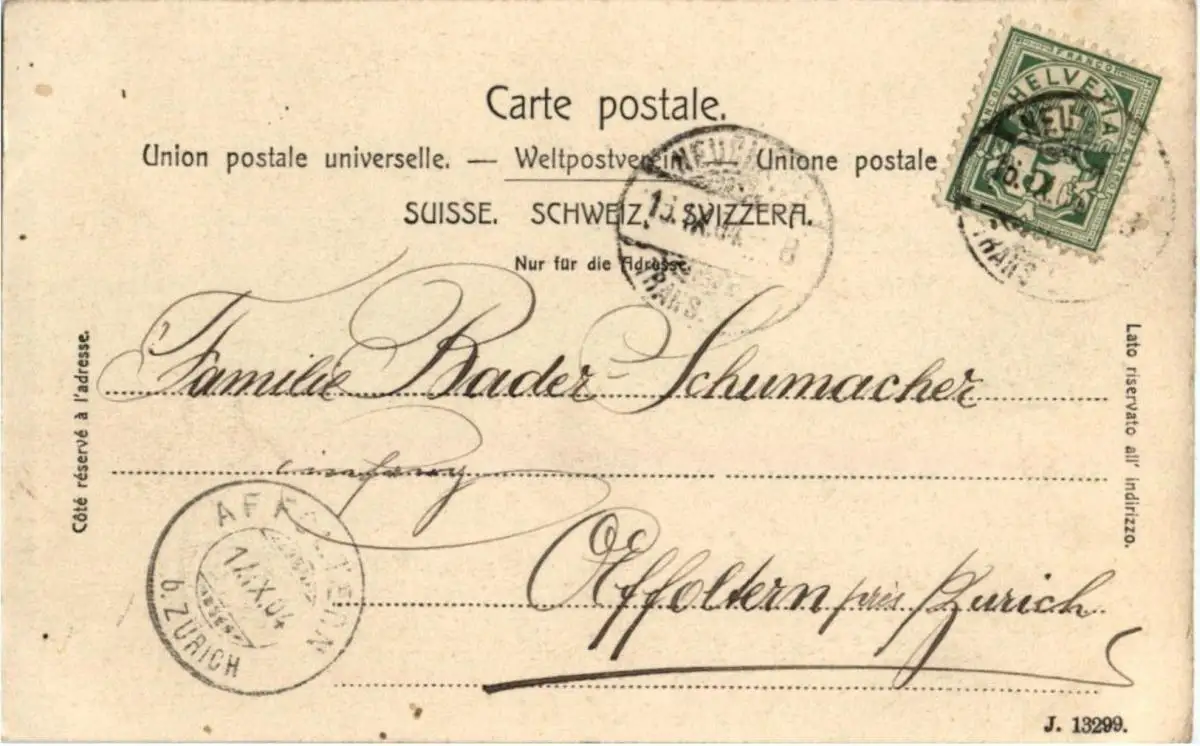 Carte postale.
Union postale universelle. — Weltpostverein — Unione postale
SUISSE. SCHWEIZ. SVIZZERA.
Nur für die Adresse.
FRANCO
HELVETIA
5
TRANS.
TRANS
Côté réservé à l'adresse.
Lato riservato all' indirizzo.
Familie Bader-Schumacher
Affoltern près Zurich
AFFOLTERN
14.IX.04
b. ZÜRICH
J. 13299.